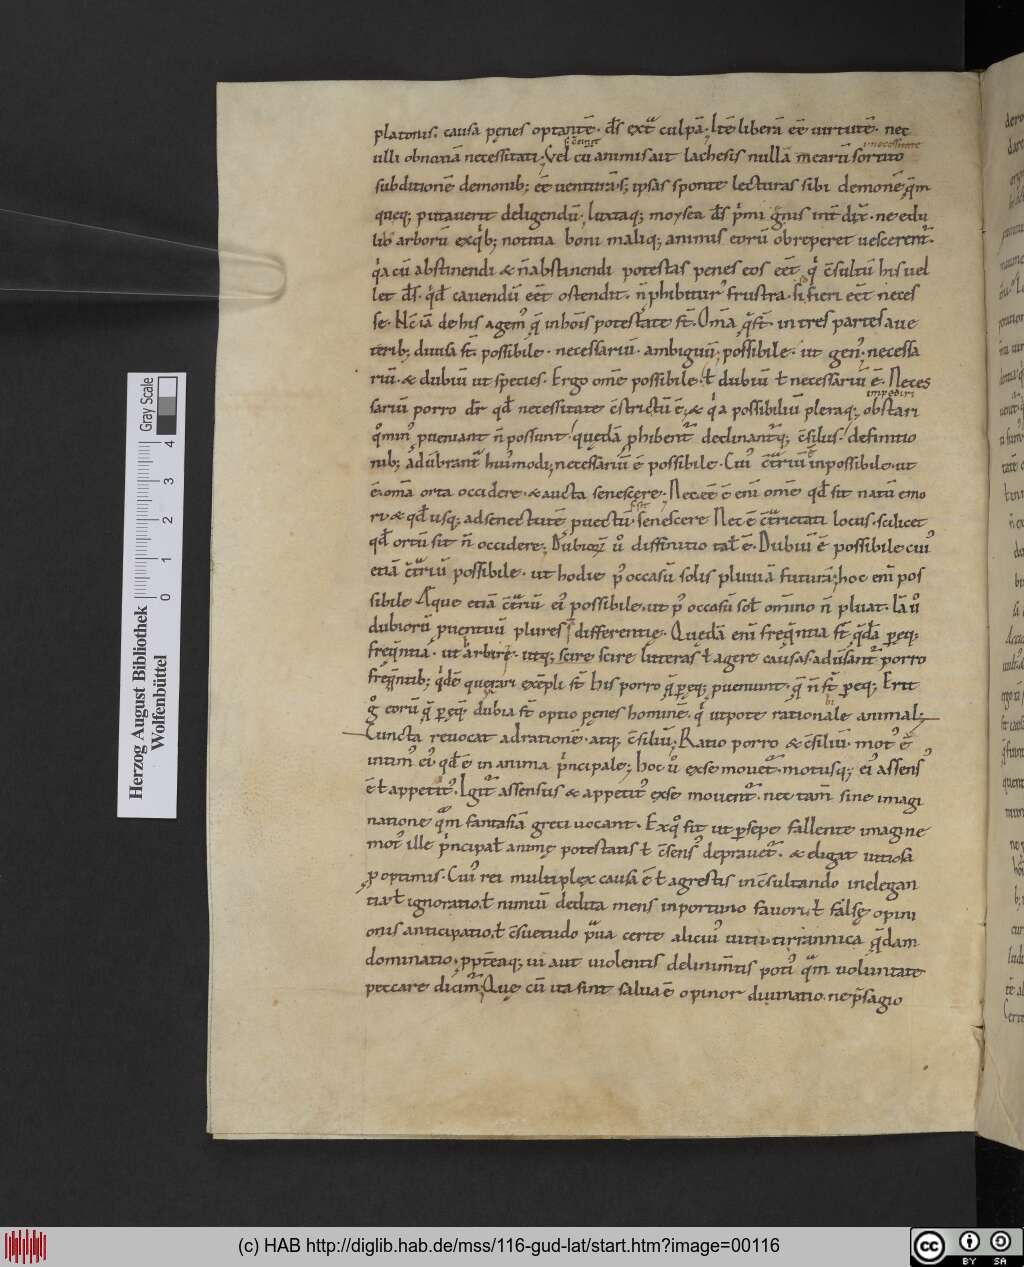 platonis. causa penes optantē. ds̄ extͣ culpā. Itē liberā eē uirtutē. nec
ulli obnoxiā necessitati. Vel cū animis ait lachesis nullā mearū sortito
subditionē demonib; eē uenturas; ipsas sponte lecturas sibi demonē q̄m
queq; putauerit deligendū. Iuxtaq; moysea ds̄ pͥmi gͥnis int̄dix̄. ne edu
lib arborū ex qͥb; notitia boni maliq; animis eorū obreperet uescerent̄.
qͥa cū abstinendi & n̄ abstinendi potestas penes eos eēt qͥ c̄sultū his uel
let ds̄. qd̄ cauendū eēt ostendit. n̄ phibitur' frustra. si fieri eēt neces
se. Nc̄ iā de his agem' q̄ in hoīs potestate st̄. Om̄a q̄ st̄. in tres partes aue
terib; diuisa st̄ possibile. necessariū. ambiguū; possibile. ut gen'. necessa
riū. & dubiū ut species. Ergo om̄e possibile. ł dubiū ł necessariū ē. Neces
impediri
sariū porro dr̄ qd̄ necessitate c̄strictū ē; & qͥa possibiliū pleraq; obstari
qͦmin' pueniant n̄ possunt. quedā phibent̄ declinantq; c̄silus. definitio
nib; adūbrant̄ hui'modi; necessariū ē possibile. Cui' c̄trͣriū inpossibile. ut
ē. om̄a orta occidere. & aucta senescere. Nec eē ē enī om̄e qd̄ sit natū emo
ri & qd̄ usq; ad senectutē puectū senescere Nec ē c̄trͣrietati locus. scilicet
qd̄ ortū sit n̄ occidere. Dubioꝝ u° diffinitio tal̄ ē. Dubiū ē possibile cui'
etiā c̄trͣriū possibile. ut hodie p' occasū solis pluuiā futurā; hoc enī pos
sibile Aque etiā c̄trͣriū ei' possibile. ut p' occasū sol̄ om̄ino n̄ pluat. Iā u°
dubiorū puentuū plures s̄ differentie. Quedā enī freq̄ntia st̄. q̄dā peq;
freq̄ntia. ut arbitͥre. utq; scire scire litteras ł agere causas. adūsant̄ porro
freq̄ntib; qͥdē querari exēpli st̄ his porro q̄ peq; pueniunt. q̄ n̄ st̄ peq; Erit
gͦ eorū q̄ peq̄ dubia st̄ optio penes hominē. qͥ utpote rationale animal;
Cuncta reuocat ad rationē. atq; c̄siliū; Ratio porro & c̄siliū. mot' ē
intim' ei'. qd̄ ē in anima pͥncipale; hoc u° ex se mouet̄. motusq; ei' assens'
ē ł appetit'. Igit̄ assensus & appetit' ex se mouent̄. nec tam̄ sine imagi
natione qͣm fantasiā greci uocant. Ex qͦ fit ut psepe fallente imagine
mot' ille pͥncipał anime potestatis ł c̄sens' deprauet̄. & eligat uitiosa
p optimis. Cui' rei multiplex causa ē ł agrestis in c̄sultando inelegan
tia ł ignoratio. ł nimiū dedita mens inportuno fauori. ł false opini
onis anticipatio. ł c̄suetudo pͣua certe alicui' uitii. tirannica q̄dam
dominatio. ppt̄eaq; ui aut uiolentis delinimtis poti' qͣm uoluntate
peccare dicim̄; Que cū ita sint salua ē opinor diuinatio. ne psagio
Herzog August Bibliothek
Wolfenbüttel
Gray Scale
0 1 2 3 4
(c) HAB http://diglib.hab.de/mss/116-gud-lat/start.htm?image=00116
cc BY SA